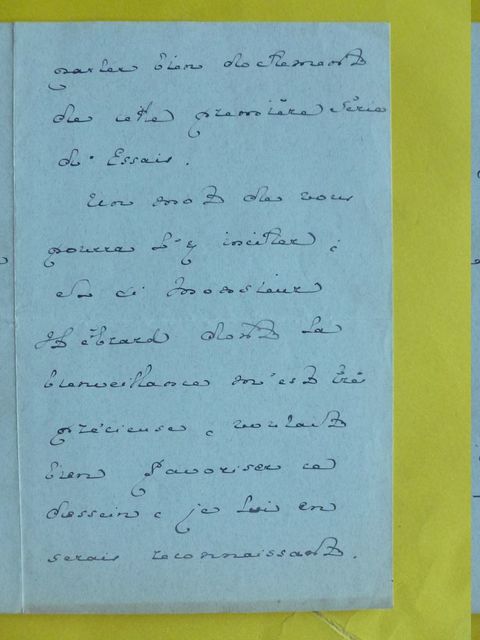 parler bien doctement
de cette première série
d'Essais.
Un mot de vous
pourra l'y inciter ;
et si Monsieur
Hébrard dont la
bienveillance m'est très
précieuse, voulait
bien favoriser ce
dessein, je lui en
serais reconnaissant.